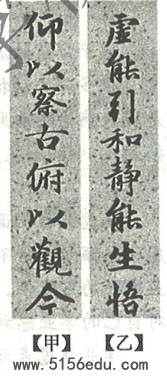 虚能引和静能生悟
仰以察古俯以觀今
【甲】 【乙】
www.5156edu.com